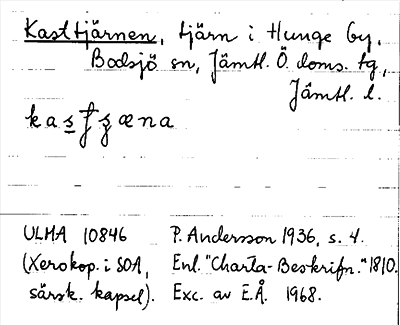 Kasttjärnen, tjärn i Hunge by,
Bodsjö sn, Jämtl. Ö. doms. tg,
Jämtl. l.
ULMA 10846 P. Andersson 1936, s. 4.
(Xerokop. i SOA, Enl. "Charta-Beskrifn." 1810.
särsk. kapsel). Exc. av E.Å. 1968.